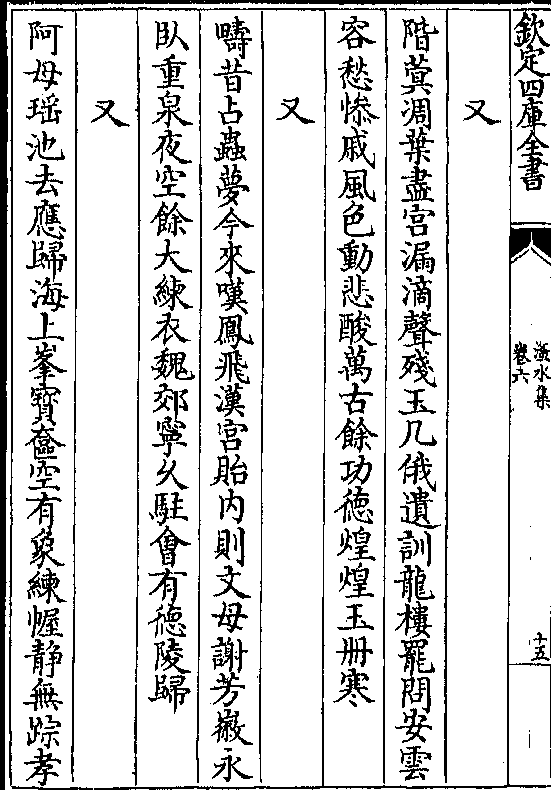 欽定四庫全書
潏水集
卷六
十五
又
階蓂凋葉盡宮漏滴聲殘玉几俄遺訓龍樓罷問安雲
容愁慘戚風色動悲酸萬古餘功德煌煌玉册寒
又
疇昔占蟲夢今來嘆鳳飛漢宮貽内則文母謝芳徽永
臥重泉夜空餘大練衣魏郊寧乆駐會有德陵歸
又
阿母瑶池去應歸海上峯寶奩空有象練幄静無踪孝